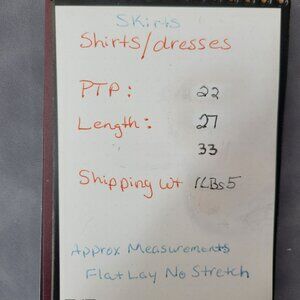 Skirts
Shirts/dresses
PTP: 22
Length: 27
33
Shipping wt 1LBs5
Approx Measurements
Flat Lay No Stretch